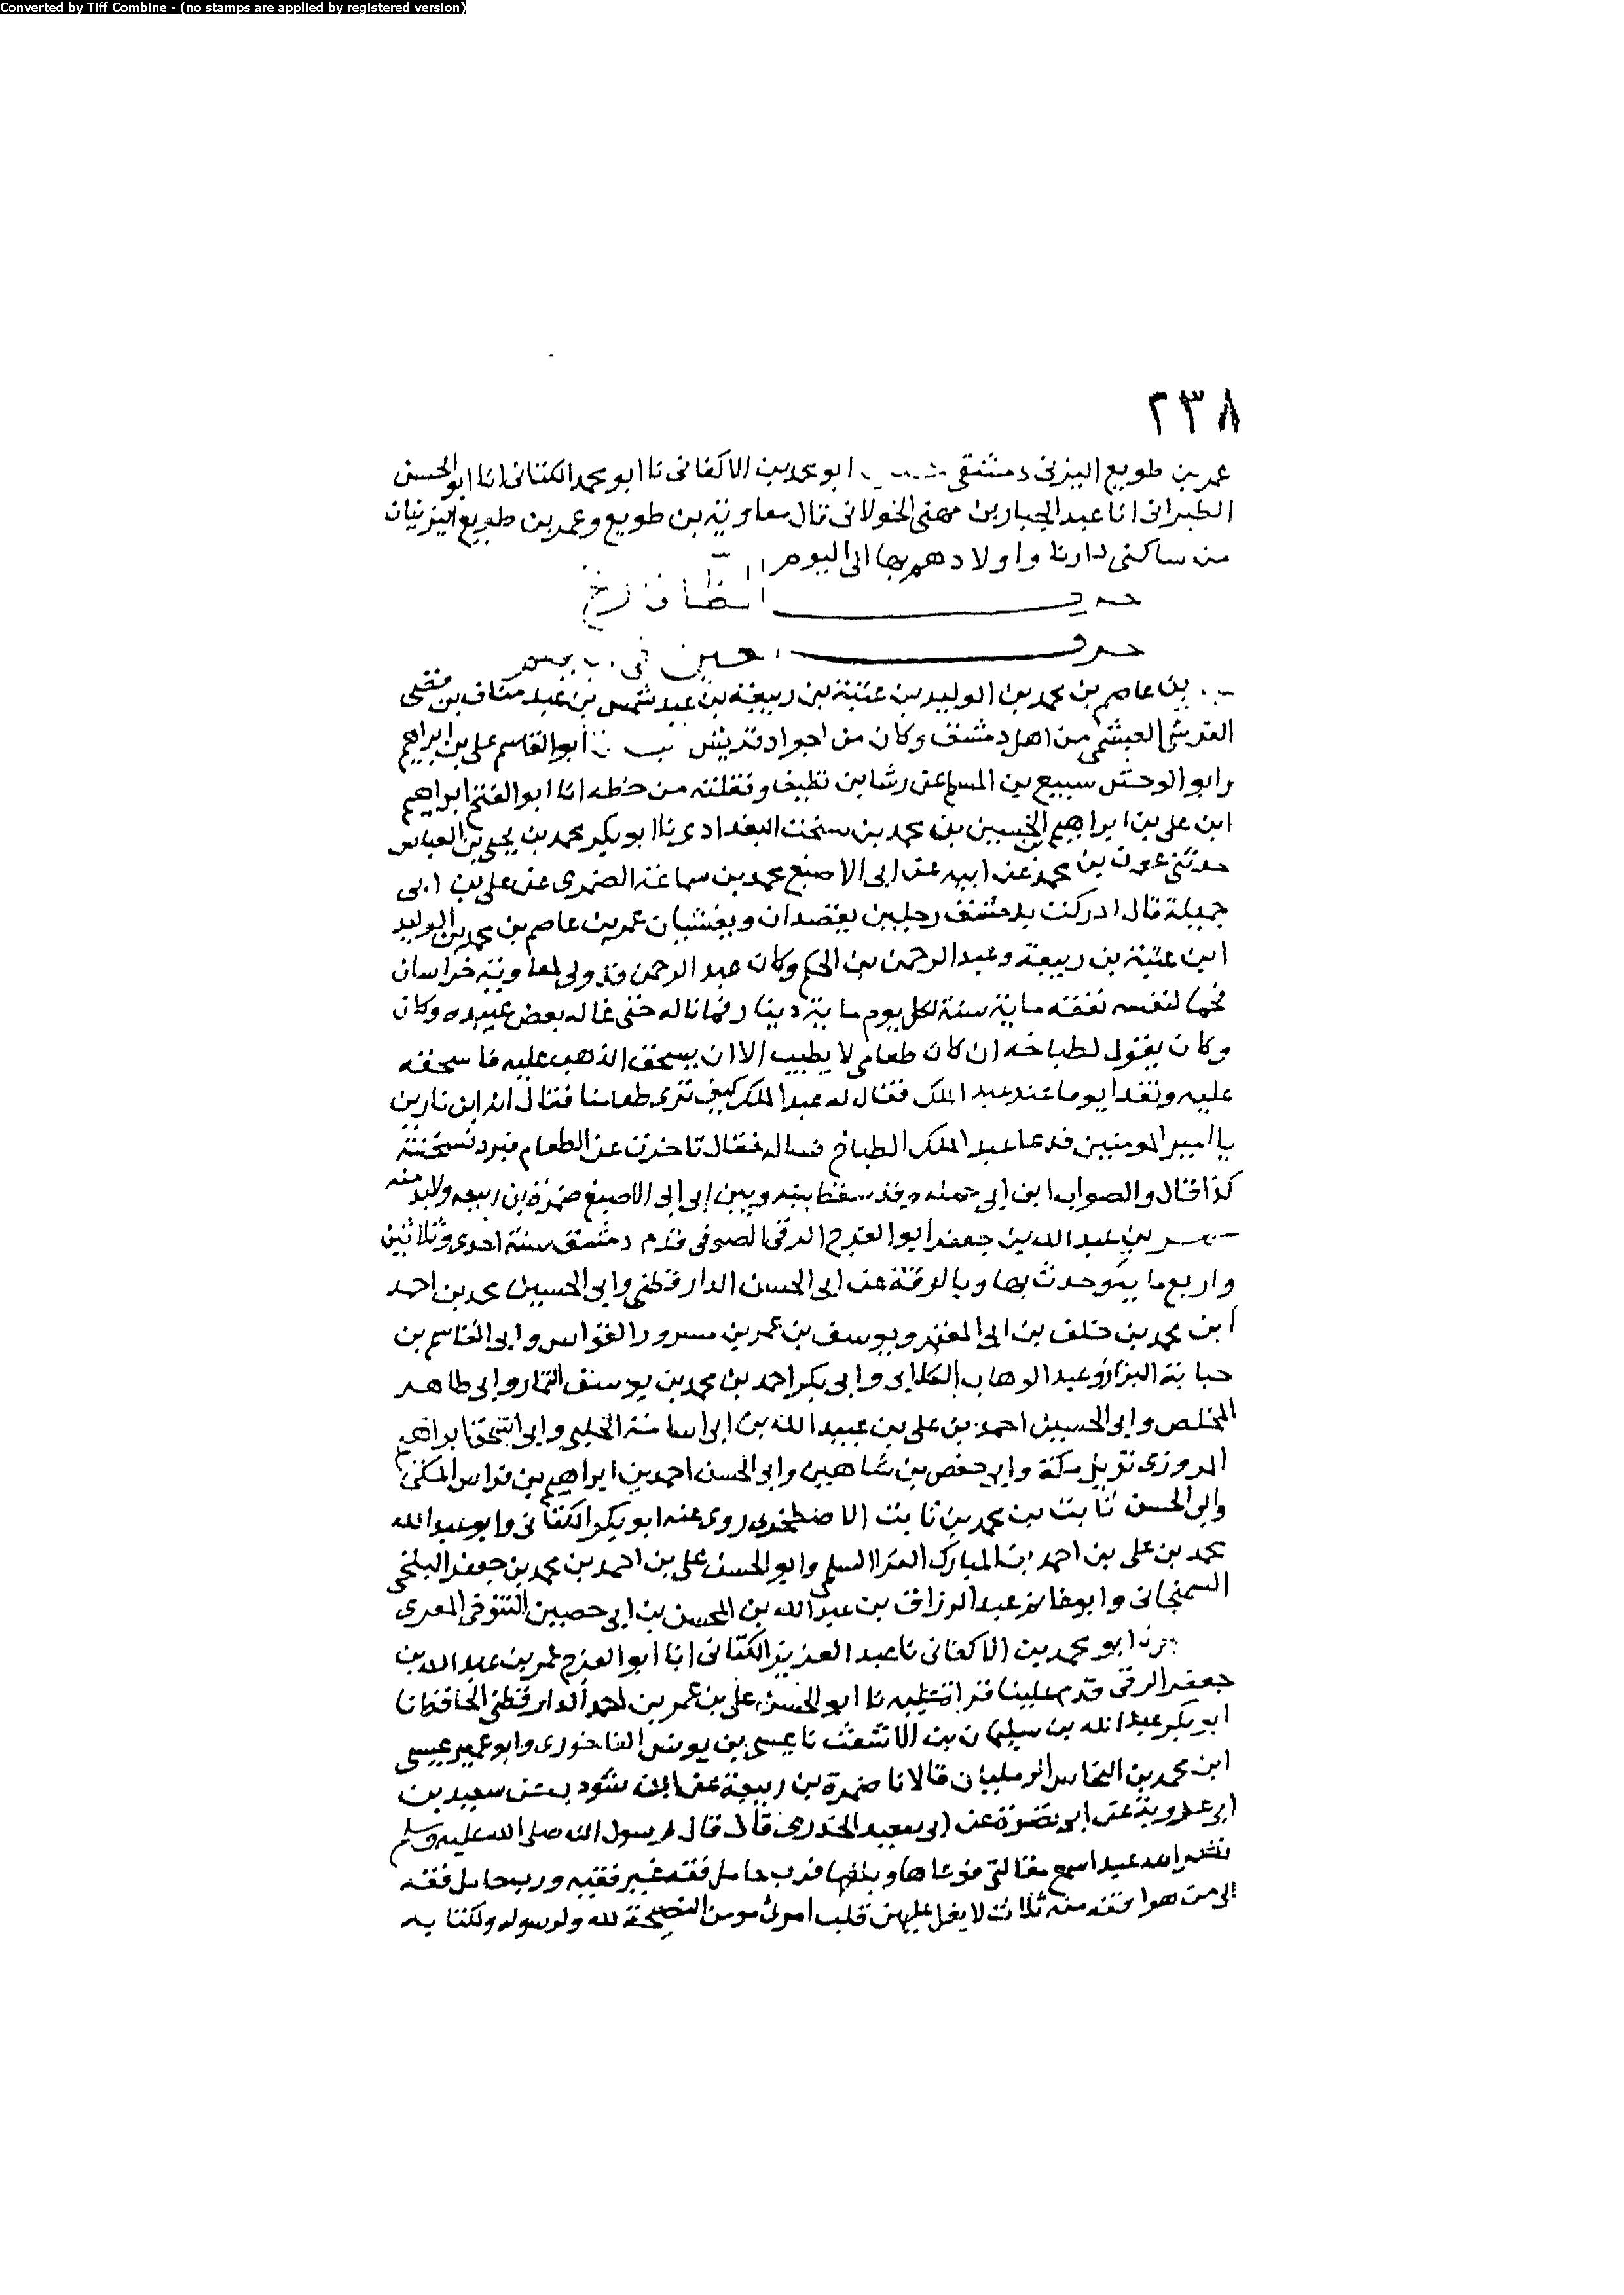 Converted by Tiff Combine - (no stamps are applied by registered version)
٢٣٨
عمر بن طويع اليزنى دمشقى ابو محمد بن الاكفانى نا ابو محمد الكتانى انا ابو الحسن
الطبرانى انا عبد الجبار بن مهنى الخولانى قال معاوية بن طويع وعمر بن طويع اليزنيان
من ساكنى داريا واولادهم بها الى اليوم
حرف
حرف العين فى
بن عاصم بن محمد بن الوليد بن عتبة بن ربيعة بن عبد شمس بن عبد مناف بن قصى
القرشى العبشمى من اهل دمشق وكان من اجواد قريش ابو القاسم على بن ابراهيم
وابو الوحش سبيع بن المسلم عن رشا بن نظيف ونقلته من خطه انا ابو الفتح ابراهيم
ابن على بن ابراهيم بن الحسين بن محمد بن سيخت البغدادى نا ابو بكر محمد بن يحيى بن العباس
حدثنى عون بن محمد عن ابيه عن ابى الاصبغ محمد بن سماعة الضمرى عن على بن ابى
جميلة قال ادركت بدمشق رجلين يقصدان ويغشيان عمر بن عاصم بن محمد بن الوليد
ابن عتبة بن ربيعة وعبد الرحمن بن الحكم وكان عبد الرحمن قد ولى لمعاوية خراسان
لنفسه نفقة ماية سنة لكل يوم ماية دينار حتى غاله بعض عبيده وكان
وكان يقول لطباخه ان كان طعامى لا يطيب الا ان يسحق الذهب عليه فاسحقه
عليه وتغدا يوما عند عبد الملك فقال له عبد الملك كيف ترى طعامنا فقال انه ابن نارين
يا امير المومنين فدعا عبد الملك الطباخ فساله فقال تاخرت عن الطعام فبرد فسخنته
كذا قال والصواب ابن ابى حمله وقد سقط بينه وبين ابى الاصبغ ضمرة بن ربيعه ولابد منه
بن عبد الله بن جعفر ابو الفرج الرقى الصوفى قدم دمشق سنة احدى وثلاثين
واربع ماية وحدث بها وبالرقة عن ابى الحسن الدارقطنى وابى الحسين محمد بن احمد
ابن محمد بن خلف بن ابى المعتمر ويوسف بن عمر بن مسرور القواس وابى القاسم بن
حبابة البزاز وعبد الوهاب الكلابى وابى بكر احمد بن محمد بن يوسف التمار وابى طاهر
المخلص وابى الحسين احمد بن على بن عبيد الله بن ابى اسامة الحلبى وابى اسحق ابراهيم
المروزى نزيل مكة وابى حفص بن شاهين وابى الحسن احمد بن ابراهيم بن فراس المكى
وابى الحسن ثابت بن محمد بن ثابت الاصطخرى روى عنه ابو بكر الكتانى وابو عبد الله
محمد بن على بن احمد بن المبارك الفرا السلمى وابو الحسن على بن احمد بن محمد بن جعفر البلخى
السمنجانى وابو غانم عبد الرزاق بن عبد الله بن المحسن بن ابى حصين التنوخى المعرى
ابو محمد بن الاكفانى نا عبد العزيز الكتانى انا ابو الفرج عمر بن عبد الله بن
جعفر الرقى قدم علينا قراة عليه نا ابو الحسن على بن عمر بن احمد الدارقطنى الحافظ نا
ابو بكر عبد الله بن سليمان بن الاشعث نا عيسى بن يونس الفاخورى وابو عمير عيسى
ابن محمد بن النحاس الرمليان قالا نا ضمرة بن ربيعة عن ابن شوذب عن سعيد بن
ابى عروبة عن ابى نضرة عن ابى سعيد الخدرى قال قال رسول الله صلى الله عليه وسلم
نضر الله عبدا سمع مقالتى فوعاها وبلغها فرب حامل فقه غير فقيه ورب حامل فقه
الى من هو افقه منه ثلاث لا يغل عليهن قلب امرئ مومن النصيحة لله ولرسوله ولكتابه